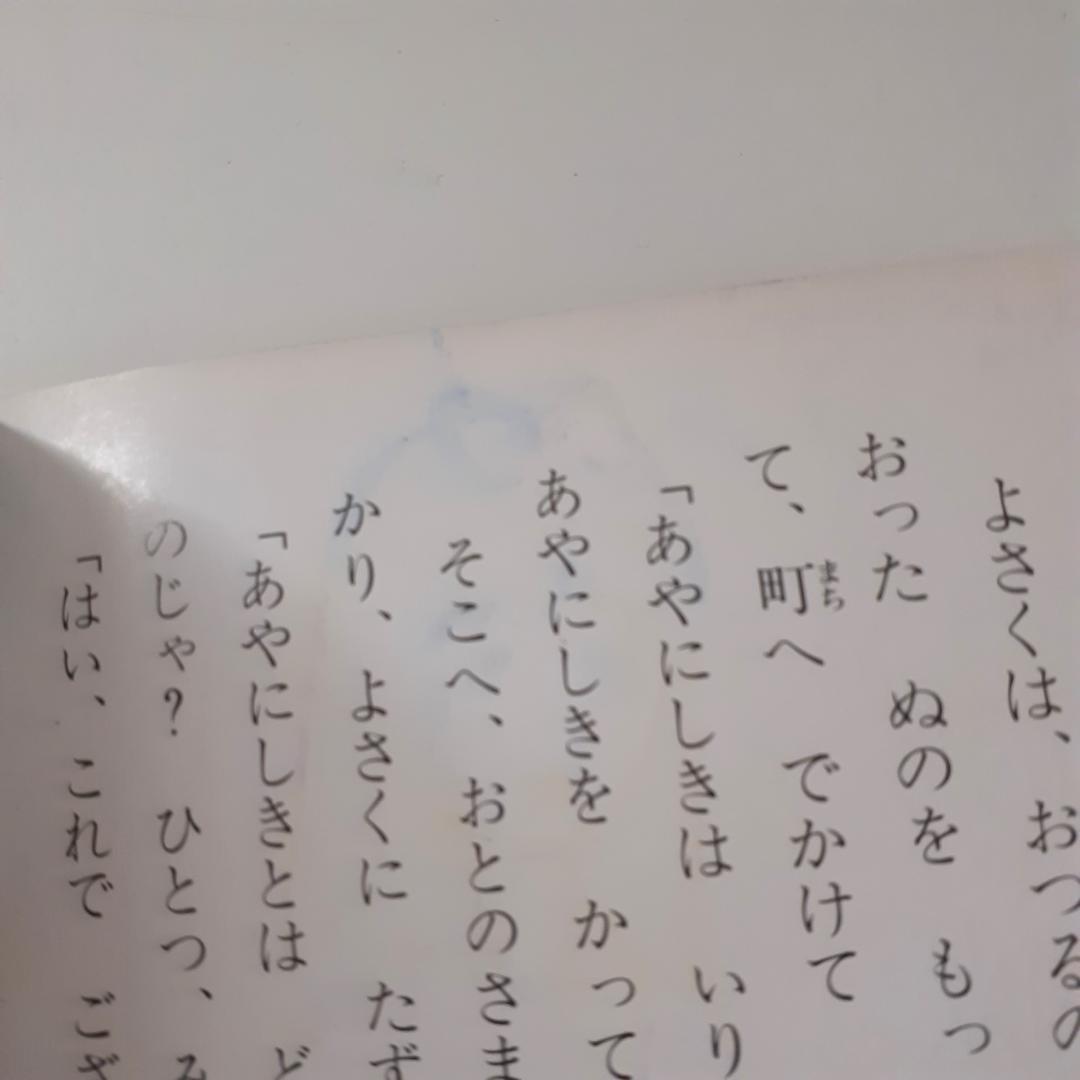 よさくは、おつるの
おった ぬのを もっ
て、町へ でかけて
まち
「あやにしきは いり
あやにしきを かって
そこへ、おとのさま
かり、よさくに たず
「あやにしきとは ど
のじゃ? ひとつ、み
「はい、これで ござ